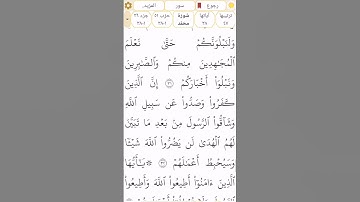 رجوع سور المزيد
ترتيبها ٤٧ آياتها ٣٨ سورة محمد حزب ٥١ جزء ٢٦
وَلَنَبْلُوَنَّكُمْ حَتَّىٰ نَعْلَمَ
ٱلْمُجَٰهِدِينَ مِنكُمْ وَٱلصَّٰبِرِينَ
وَنَبْلُوَا۟ أَخْبَارَكُمْ ٣١ إِنَّ ٱلَّذِينَ
كَفَرُوا۟ وَصَدُّوا۟ عَن سَبِيلِ ٱللَّهِ
وَشَآقُّوا۟ ٱلرَّسُولَ مِنۢ بَعْدِ مَا تَبَيَّنَ
لَهُمُ ٱلْهُدَىٰ لَن يَضُرُّوا۟ ٱللَّهَ شَيْـًٔا
وَسَيُحْبِطُ أَعْمَٰلَهُمْ ٣٢ ۞ يَٰٓأَيُّهَا
ٱلَّذِينَ ءَامَنُوٓا۟ أَطِيعُوا۟ ٱللَّهَ وَأَطِيعُوا۟